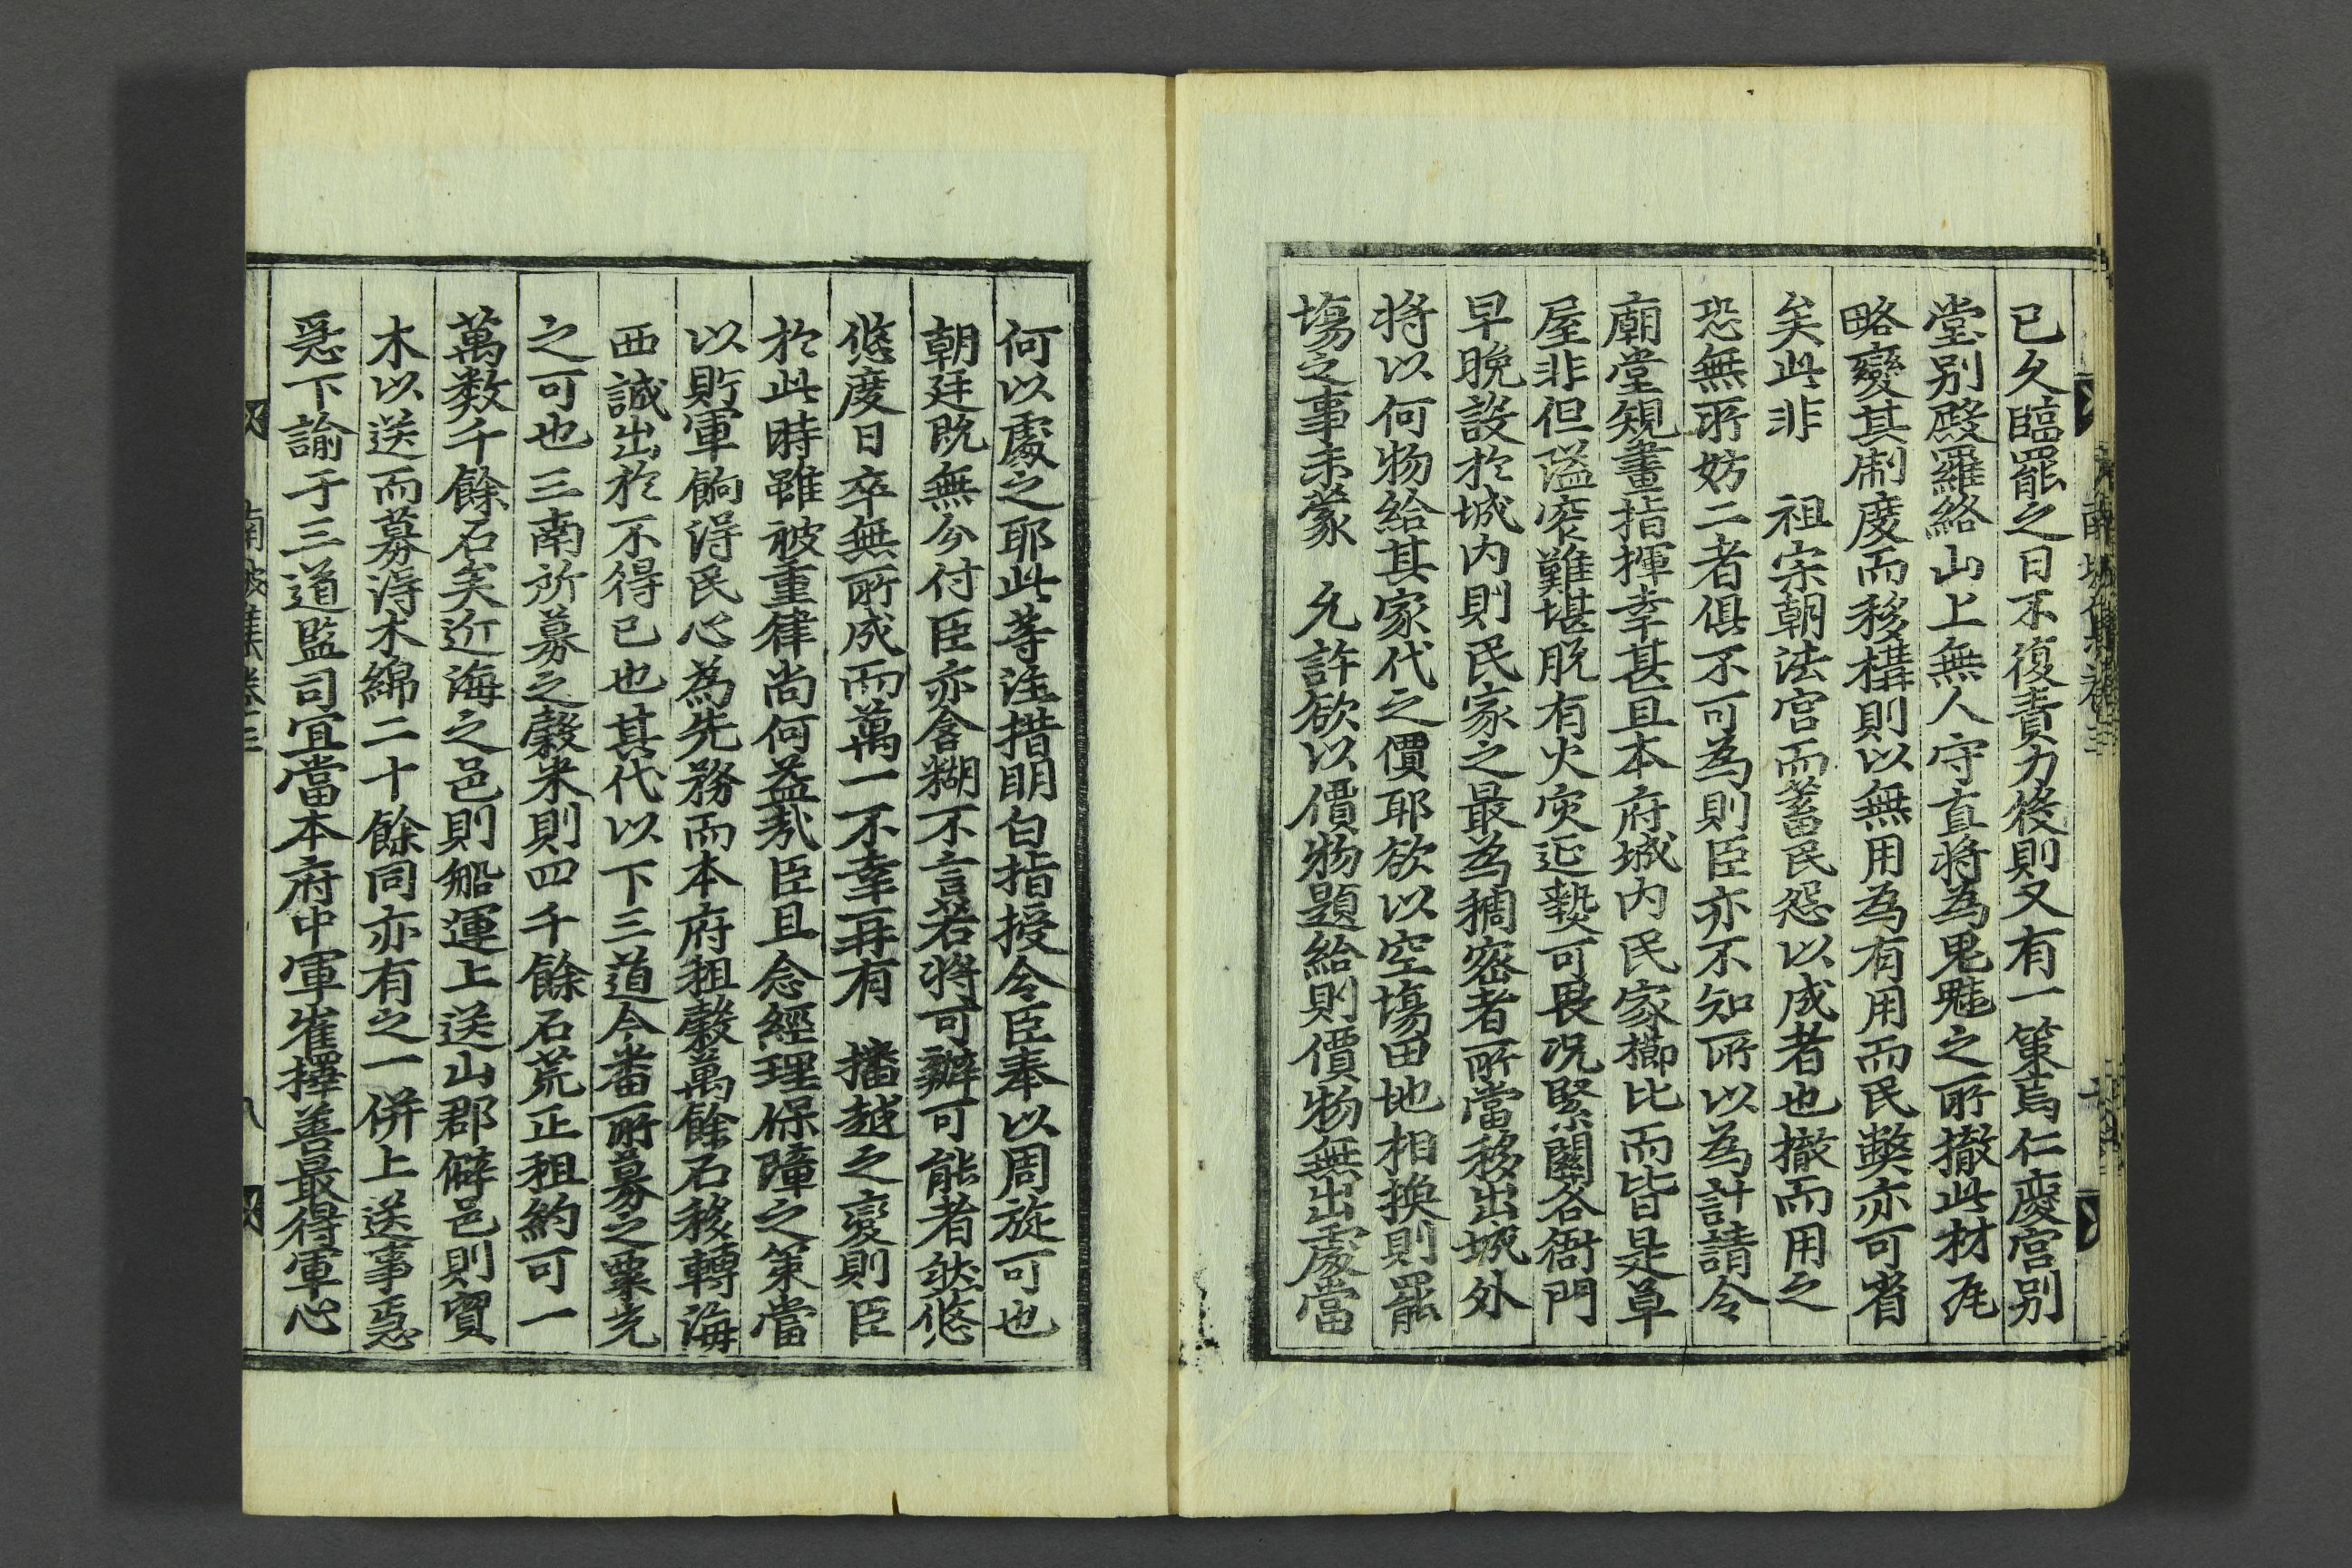 已久臨罷之日不復責力後則又有一策焉仁慶宮別
堂別殿羅絡山上無人守直將為鬼魅之所撤此材瓦
略變其制度而移構則以無用為有用而民弊亦可省
矣此非 祖宗朝法宮而蓄民怨以成者也撤而用之
恐無所妨二者俱不可為則臣亦不知所以為計請令
廟堂規畫指揮幸甚且本府城內民家櫛比而皆是草
屋非但隘窄難堪脫有火灾延爇可畏况緊關各衙門
早晚設於城內則民家之最為稠密者所當移出城外
將以何物給其家代之價耶欲以空塲田地相換則罷
塲之事未蒙 允許欲以價物題給則價物無出處當
何以處之耶此等注措明白指授令臣奉以周旋可也
朝廷既無分付臣亦含糊不言若將可辦可能者然悠
悠度日卒無所成而萬一不幸再有 播越之變則臣
於此時雖被重律尚何益哉臣且念經理保障之策當
以貯軍餉得民心為先務而本府租穀萬餘石移轉海
西誠出於不得已也其代以下三道今番所募之粟充
之可也三南所募之穀米則四千餘石荒正租約可一
萬数千餘石矣近海之邑則船運上送山郡僻邑則貿
木以送而募得木綿二十餘同亦有之一併上送事急
急下諭于三道監司宜當本府中軍崔擇善最得軍心